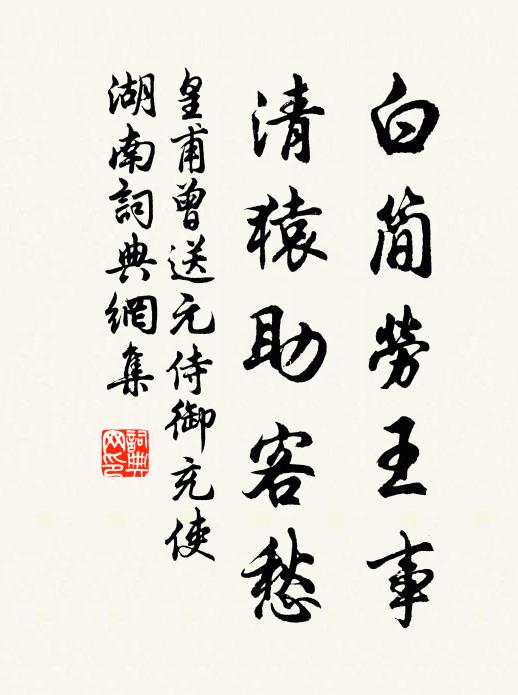 白简勞王事
清猿助客愁
皇甫曾送元侍御充使
湖南詞典網集
詞典
网印